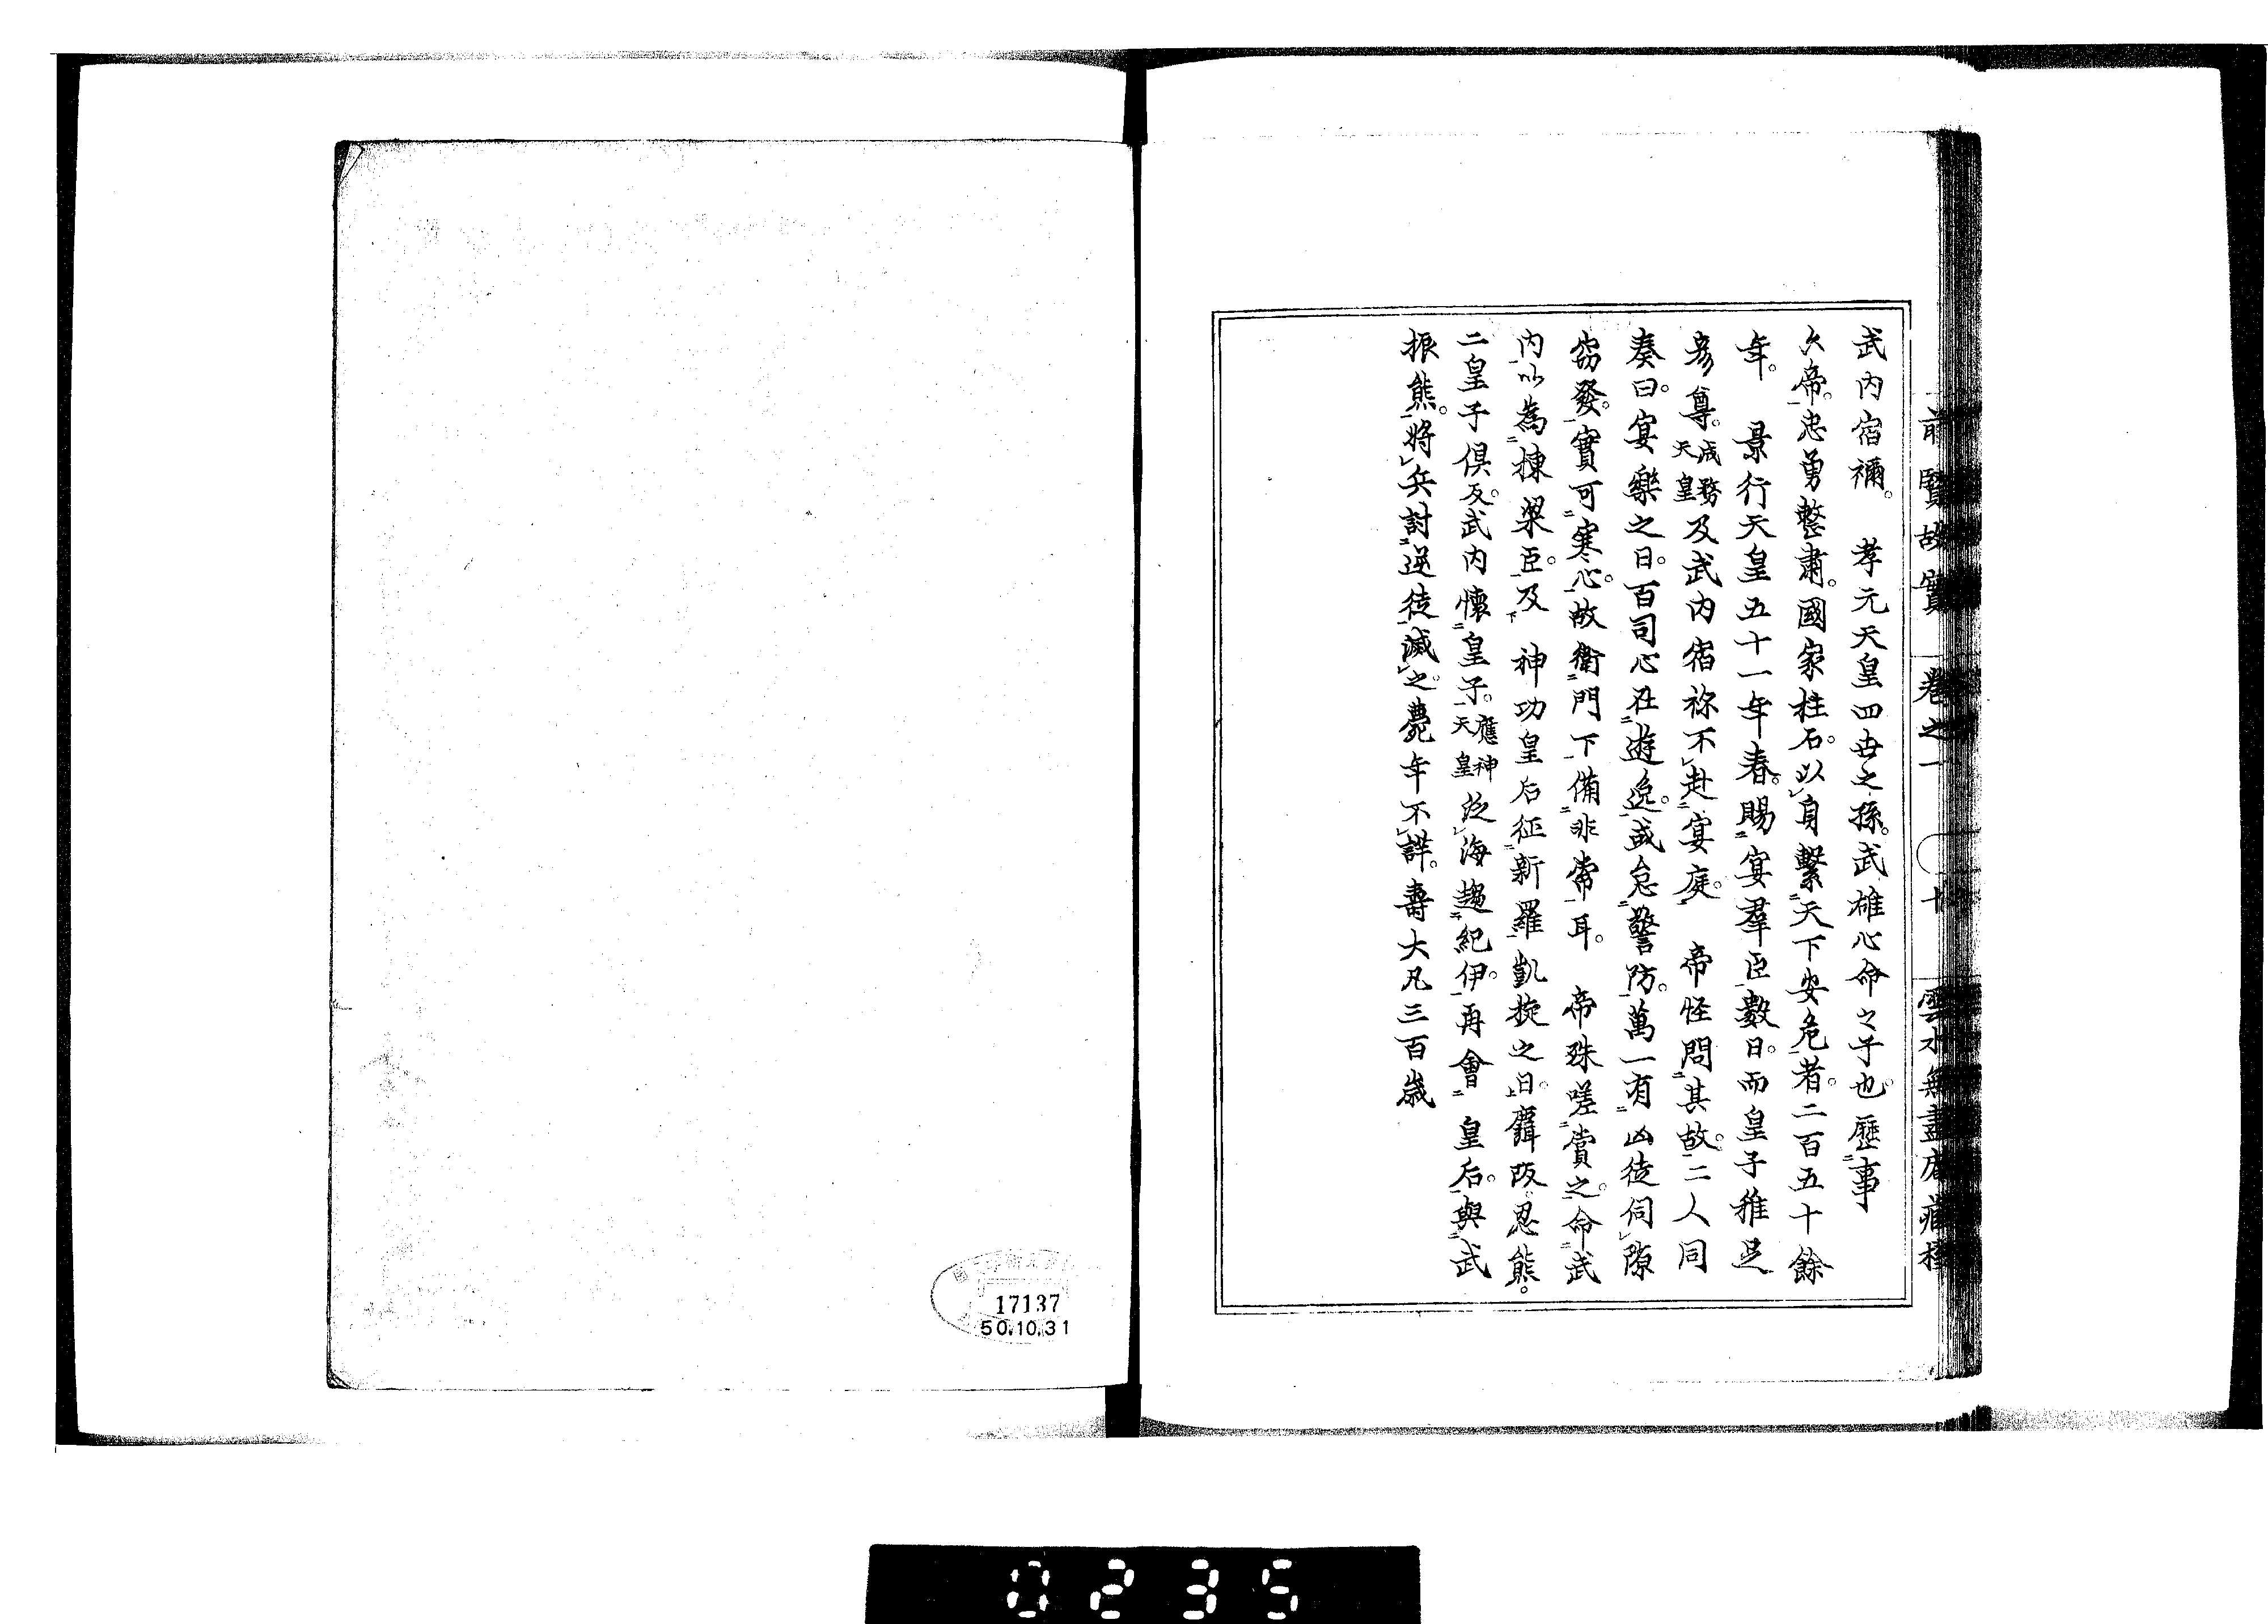 前賢故實 卷之一 十 雲水無盡庵藏
武内宿禰。 孝元天皇四世之孫。武雄心命之子也。歷事
六帝。忠勇整肅。國家柱石。以身繫天下安危者。二百五十餘
年。 景行天皇五十一年春。賜宴羣臣數日。而皇子稚足
彦尊。成務天皇及武内宿祢不赴宴庭。 帝怪問其故。二人同
奏曰。宴樂之日。百司心在遊逸。或怠警防。萬一有凶徒伺隙
窃發。實可寒心。故衛門下備非常耳。 帝殊嗟賞之。命武
内以為棟梁臣。及 神功皇后征新羅凱旋之日。麛阪忍熊。
二皇子俱反。武内懷皇子。應神天皇泛海趨紀伊。再會 皇后。與武
振熊。將兵討逆徒滅之。薨年不詳。壽大凡三百歲
17137
50.10.31
0235